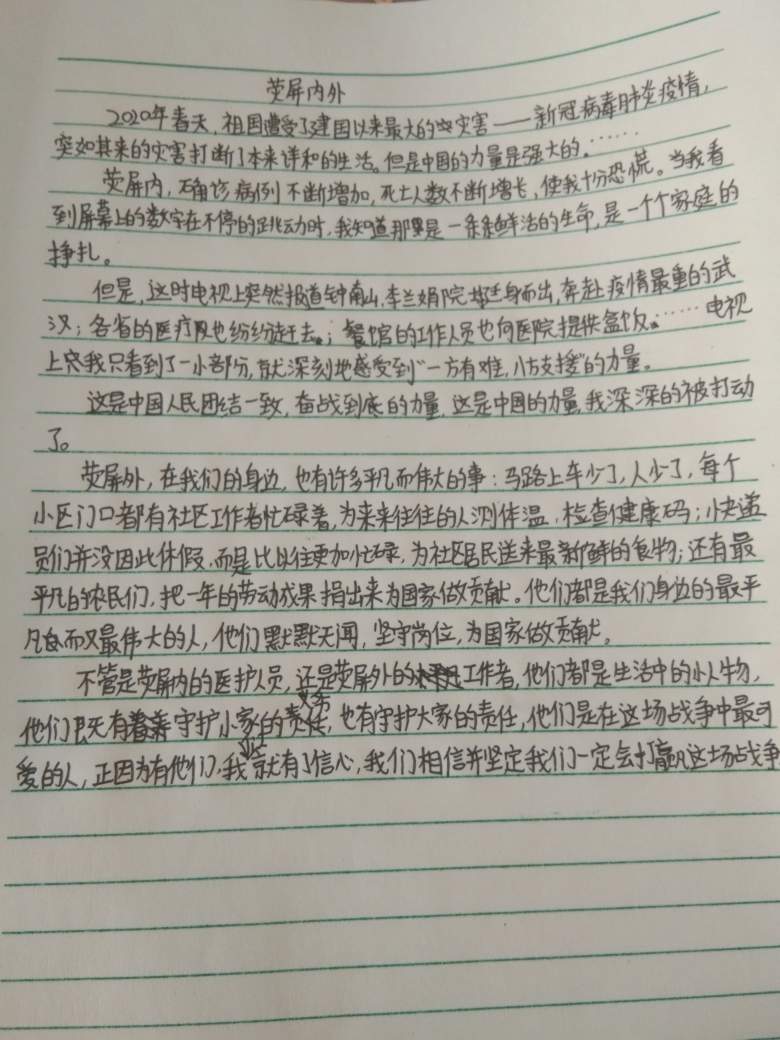 荧屏内外
2020年春天,祖国遭受了建国以来最大的灾害——新冠病毒肺炎疫情,
突如其来的灾害打断了本来详和的生活。但是中国的力量是强大的。……
荧屏内,确诊病例不断增加,死亡人数不断增长,使我十份恐慌。当我看
到屏幕上的数字在不停的跳动时,我知道那里是一条条鲜活的生命,是一个个家庭的
挣扎。
但是,这时电视上突然报道钟南山,李兰娟院士挺身而出,奔赴疫情最重的武
汉;各省的医疗队也纷纷赶去;餐馆的工作人员也向医院提供盒饭……电视
上我只看到了一小部分,就深刻地感受到“一方有难,八方支援”的力量。
这是中国人民团结一致,奋战到底的力量,这是中国的力量,我深深的被打动
了。
荧屏外,在我们的身边,也有许多平凡而伟大的事:马路上车少了,人少了,每个
小区门口都有社区工作者忙碌着,为来来往往的人测体温,检查健康码;小快递
员们并没因此休假,而是比以往更加忙碌,为社区居民送来最新鲜的食物;还有最
平凡的农民们,把一年的劳动成果捐出来为国家做贡献。他们都是我们身边的最平
凡而又最伟大的人,他们默默无闻,坚守岗位,为国家做贡献。
不管是荧屏内的医护人员,还是荧屏外的工作者,他们都是生活中的小人物,
他们既无有守护小家的义务,也有守护大家的责任,他们是在这场战争中最可
爱的人,正因为有他们,我就有了信心,我们相信并坚定我们一定会打赢这场战争